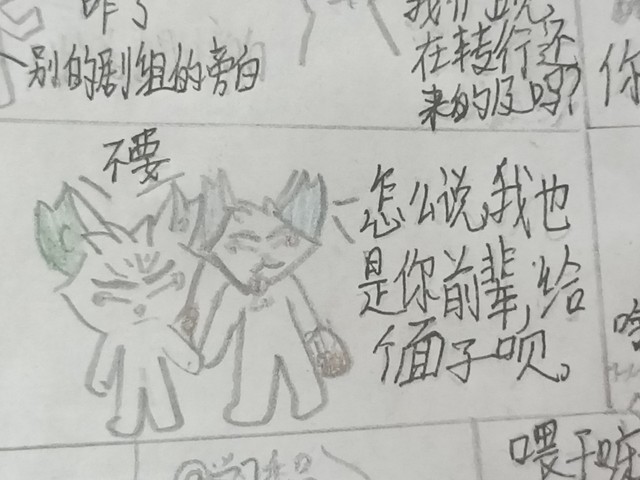 咋了
别的剧组的旁白
在转行还
来的及吗?
你
不要
怎么说,我也
是你前辈,给
个面子呗。
喂干嘛